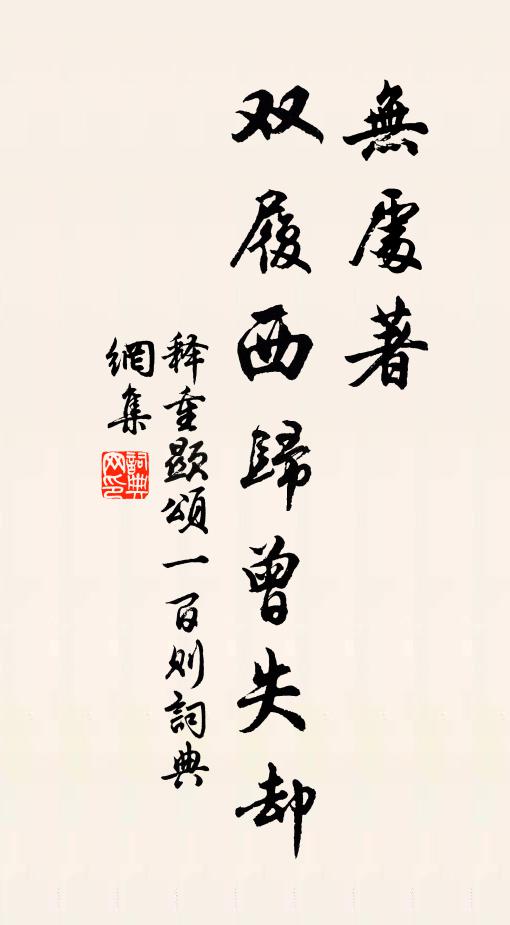 無處著
双履西歸曾失却
释重顯頌一百则詞典
網集
詞典
网印